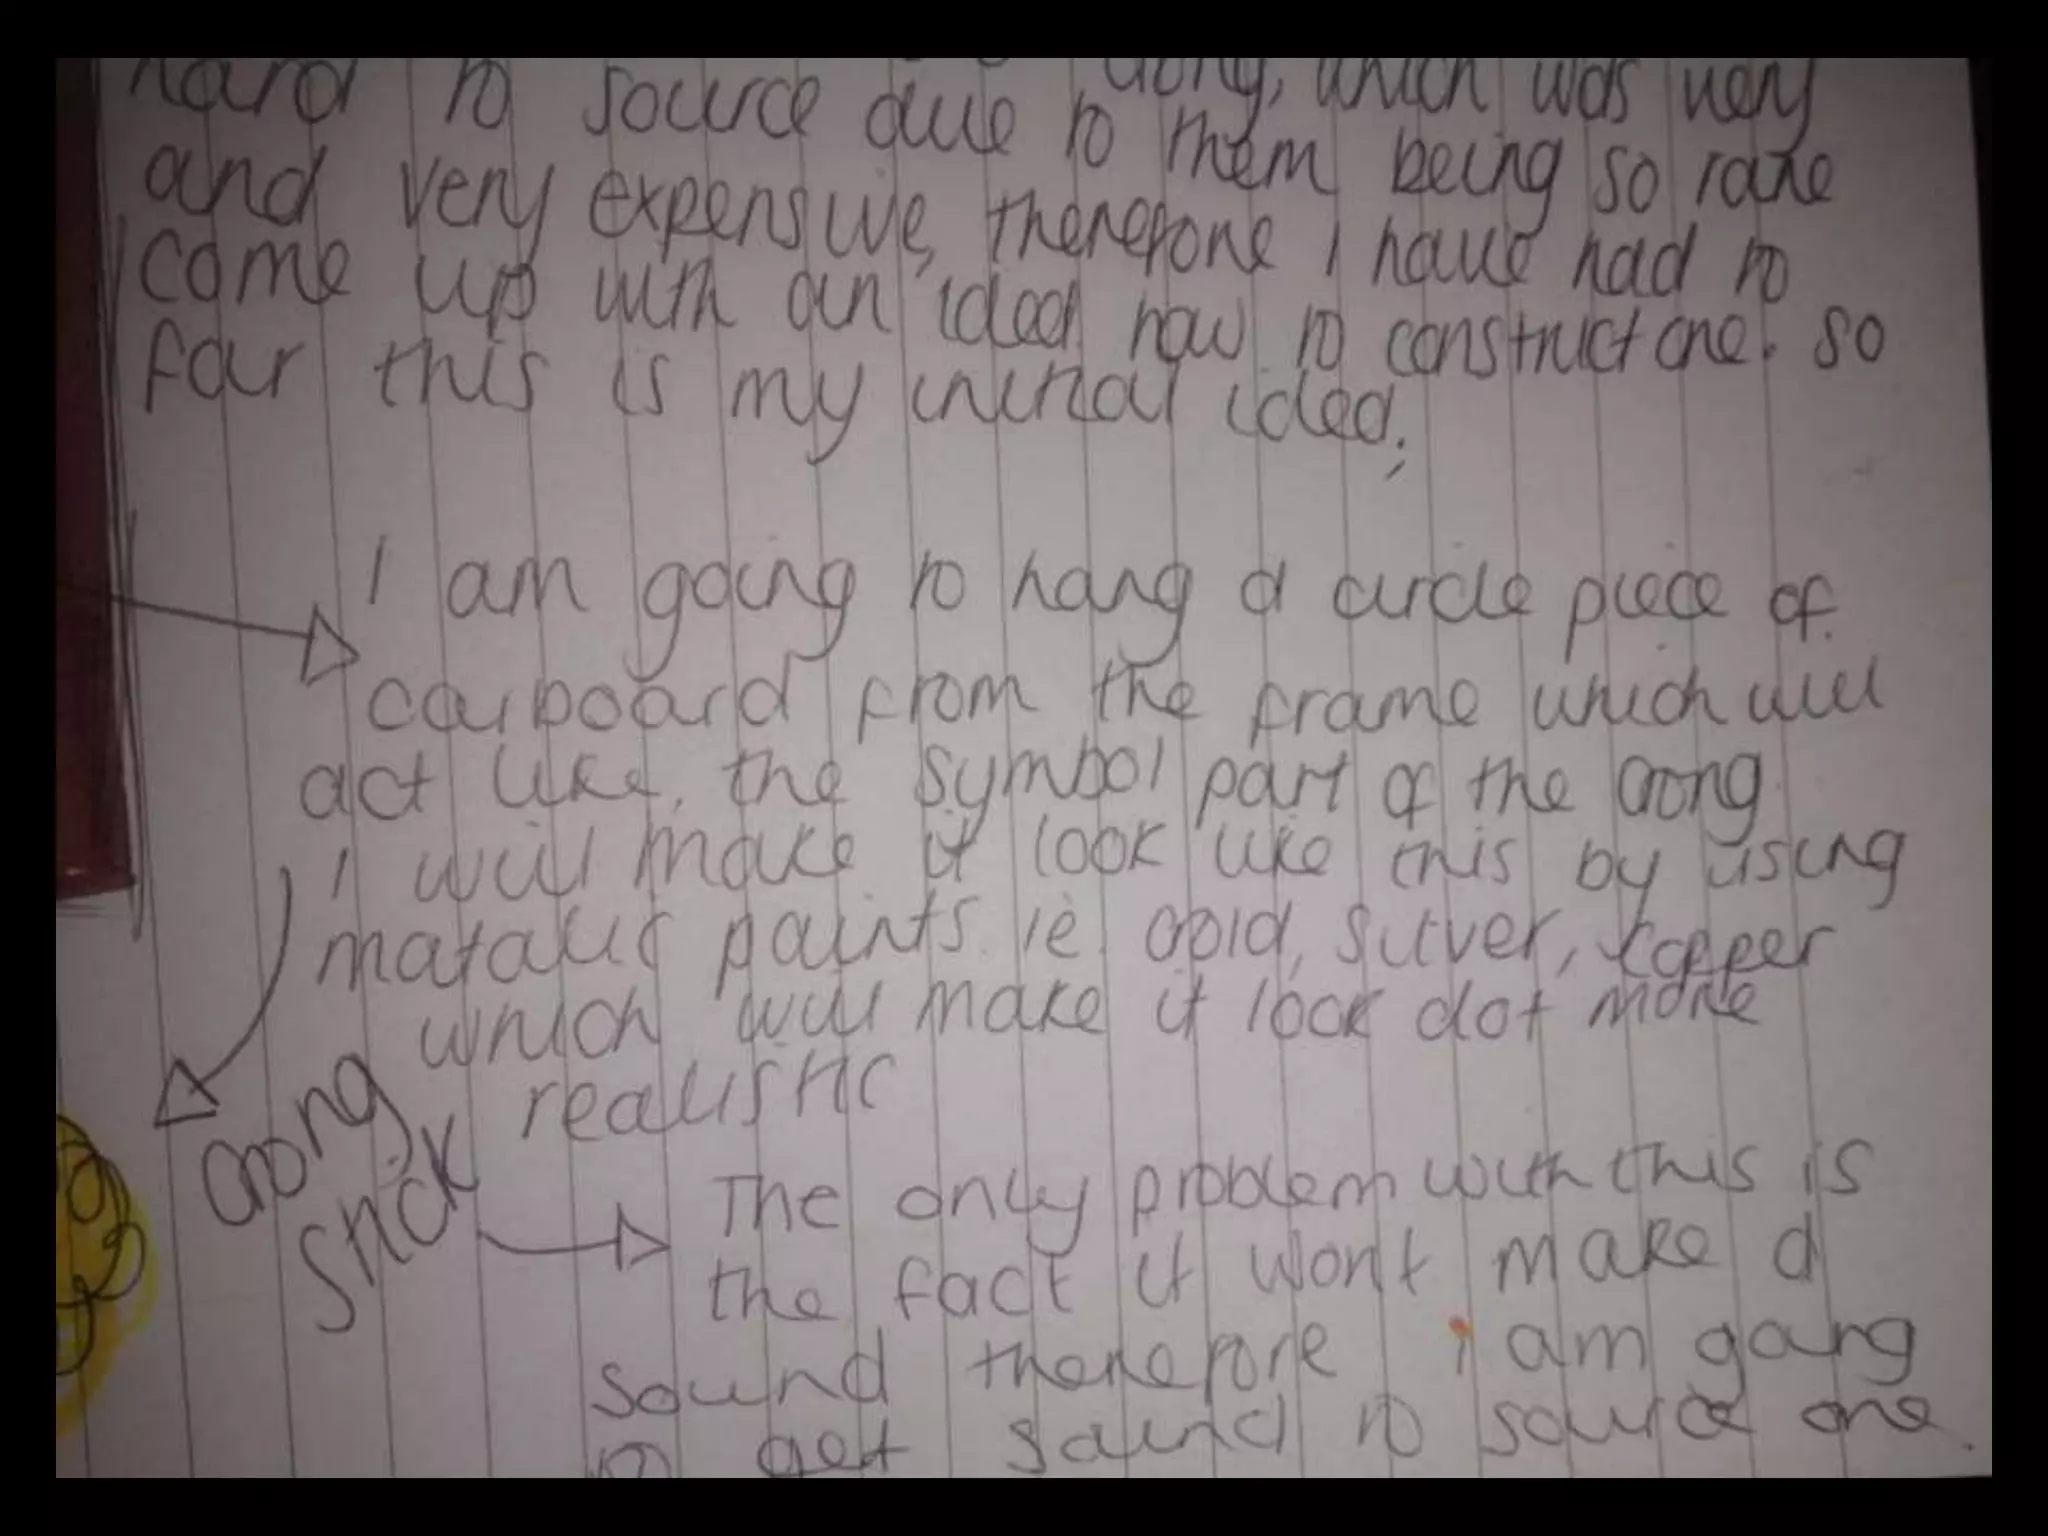 Gong, which was very
hard to source due to them being so rare
and very expensive, therefore I have had to
come up with an idea how to construct one. So
far this is my initial idea;
I am going to hang a circle piece of
carboard from the frame which will
act like, the symbol part of the Gong
I will make it look like this by using
matalic paints. ie. Gold, Silver, copper
which will make it look alot more
realistic
Gong
Stick
The only problem with this is
the fact it wont make a
sound therefore i am going
to get sound to source one.